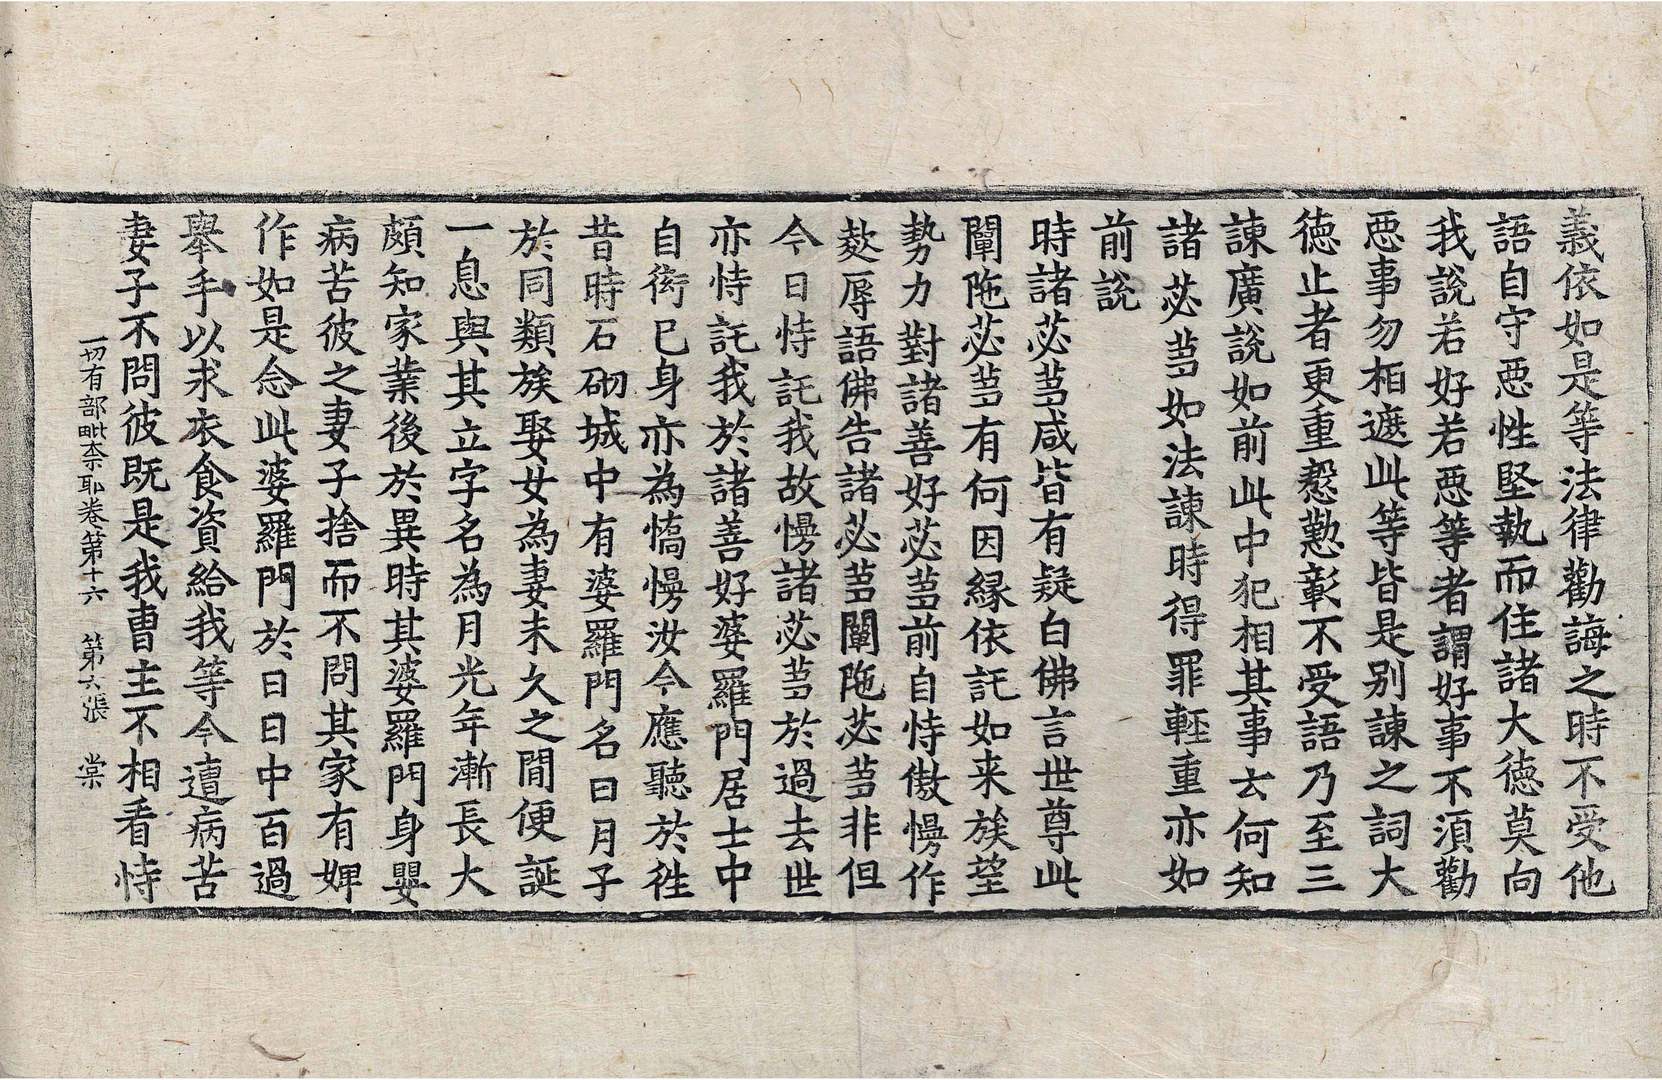 義依如是等法律勸誨之時不受他
語自守惡性堅執而住諸大德莫向
我說若好若惡等者謂好事不須勸
惡事勿相遮此等皆是別諫之詞大
德止者更重慇懃彰不受語乃至三
諫廣說如前此中犯相其事云何知
諸苾芻如法諫時得罪輕重亦如
前說
時諸苾芻咸皆有疑白佛言世尊此
闡陁苾芻有何因緣依託如来族望
勢力對諸善好苾芻前自恃傲慢作
欺辱語佛告諸苾芻闡陁苾芻非但
今日恃託我故慢諸苾芻於過去世
亦恃託我於諸善好婆羅門居士中
自衒己身亦為憍慢汝今應聽於往
昔時石砌城中有婆羅門名曰月子
於同類族娶女為妻未久之間便誕
一息與其立字名為月光年漸長大
頗知家業後於異時其婆羅門身嬰
病苦彼之妻子捨而不問其家有婢
作如是念此婆羅門於日日中百過
舉手以求衣食資給我等今遭病苦
妻子不問彼既是我曹主不相看恃
一切有部毗奈耶卷第十六 第六張 棠